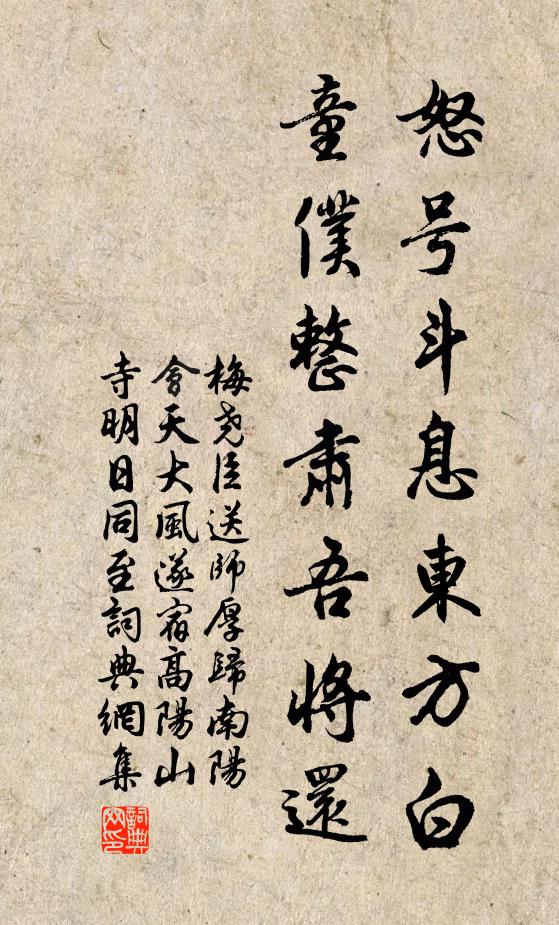 怒号斗息東方白
童僕整肅吾將還
梅堯臣送師厚歸南陽
會天大風遂宿高陽山
寺明日同至詞典網集
詞典网印